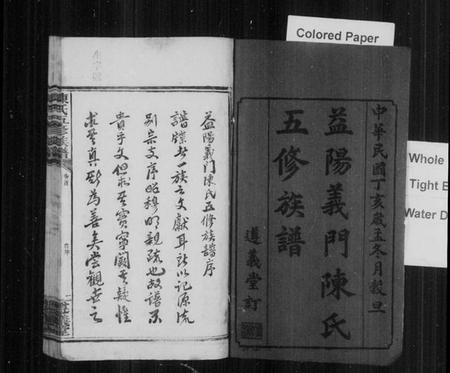 Colored Paper
Whole
Tight B
Water D
中華民國丁亥歲孟冬月穀旦
益陽義門陳氏
五修族譜
遵義堂訂
益陽義門陳氏五修族譜序
譜牒者一族之文獻耳所以記源流
別宗支序昭穆明親疏也故譜不
貴乎文但求其實寧闕其疑惟
求其真斯為善矣嘗觀世之
陳氏五修族譜